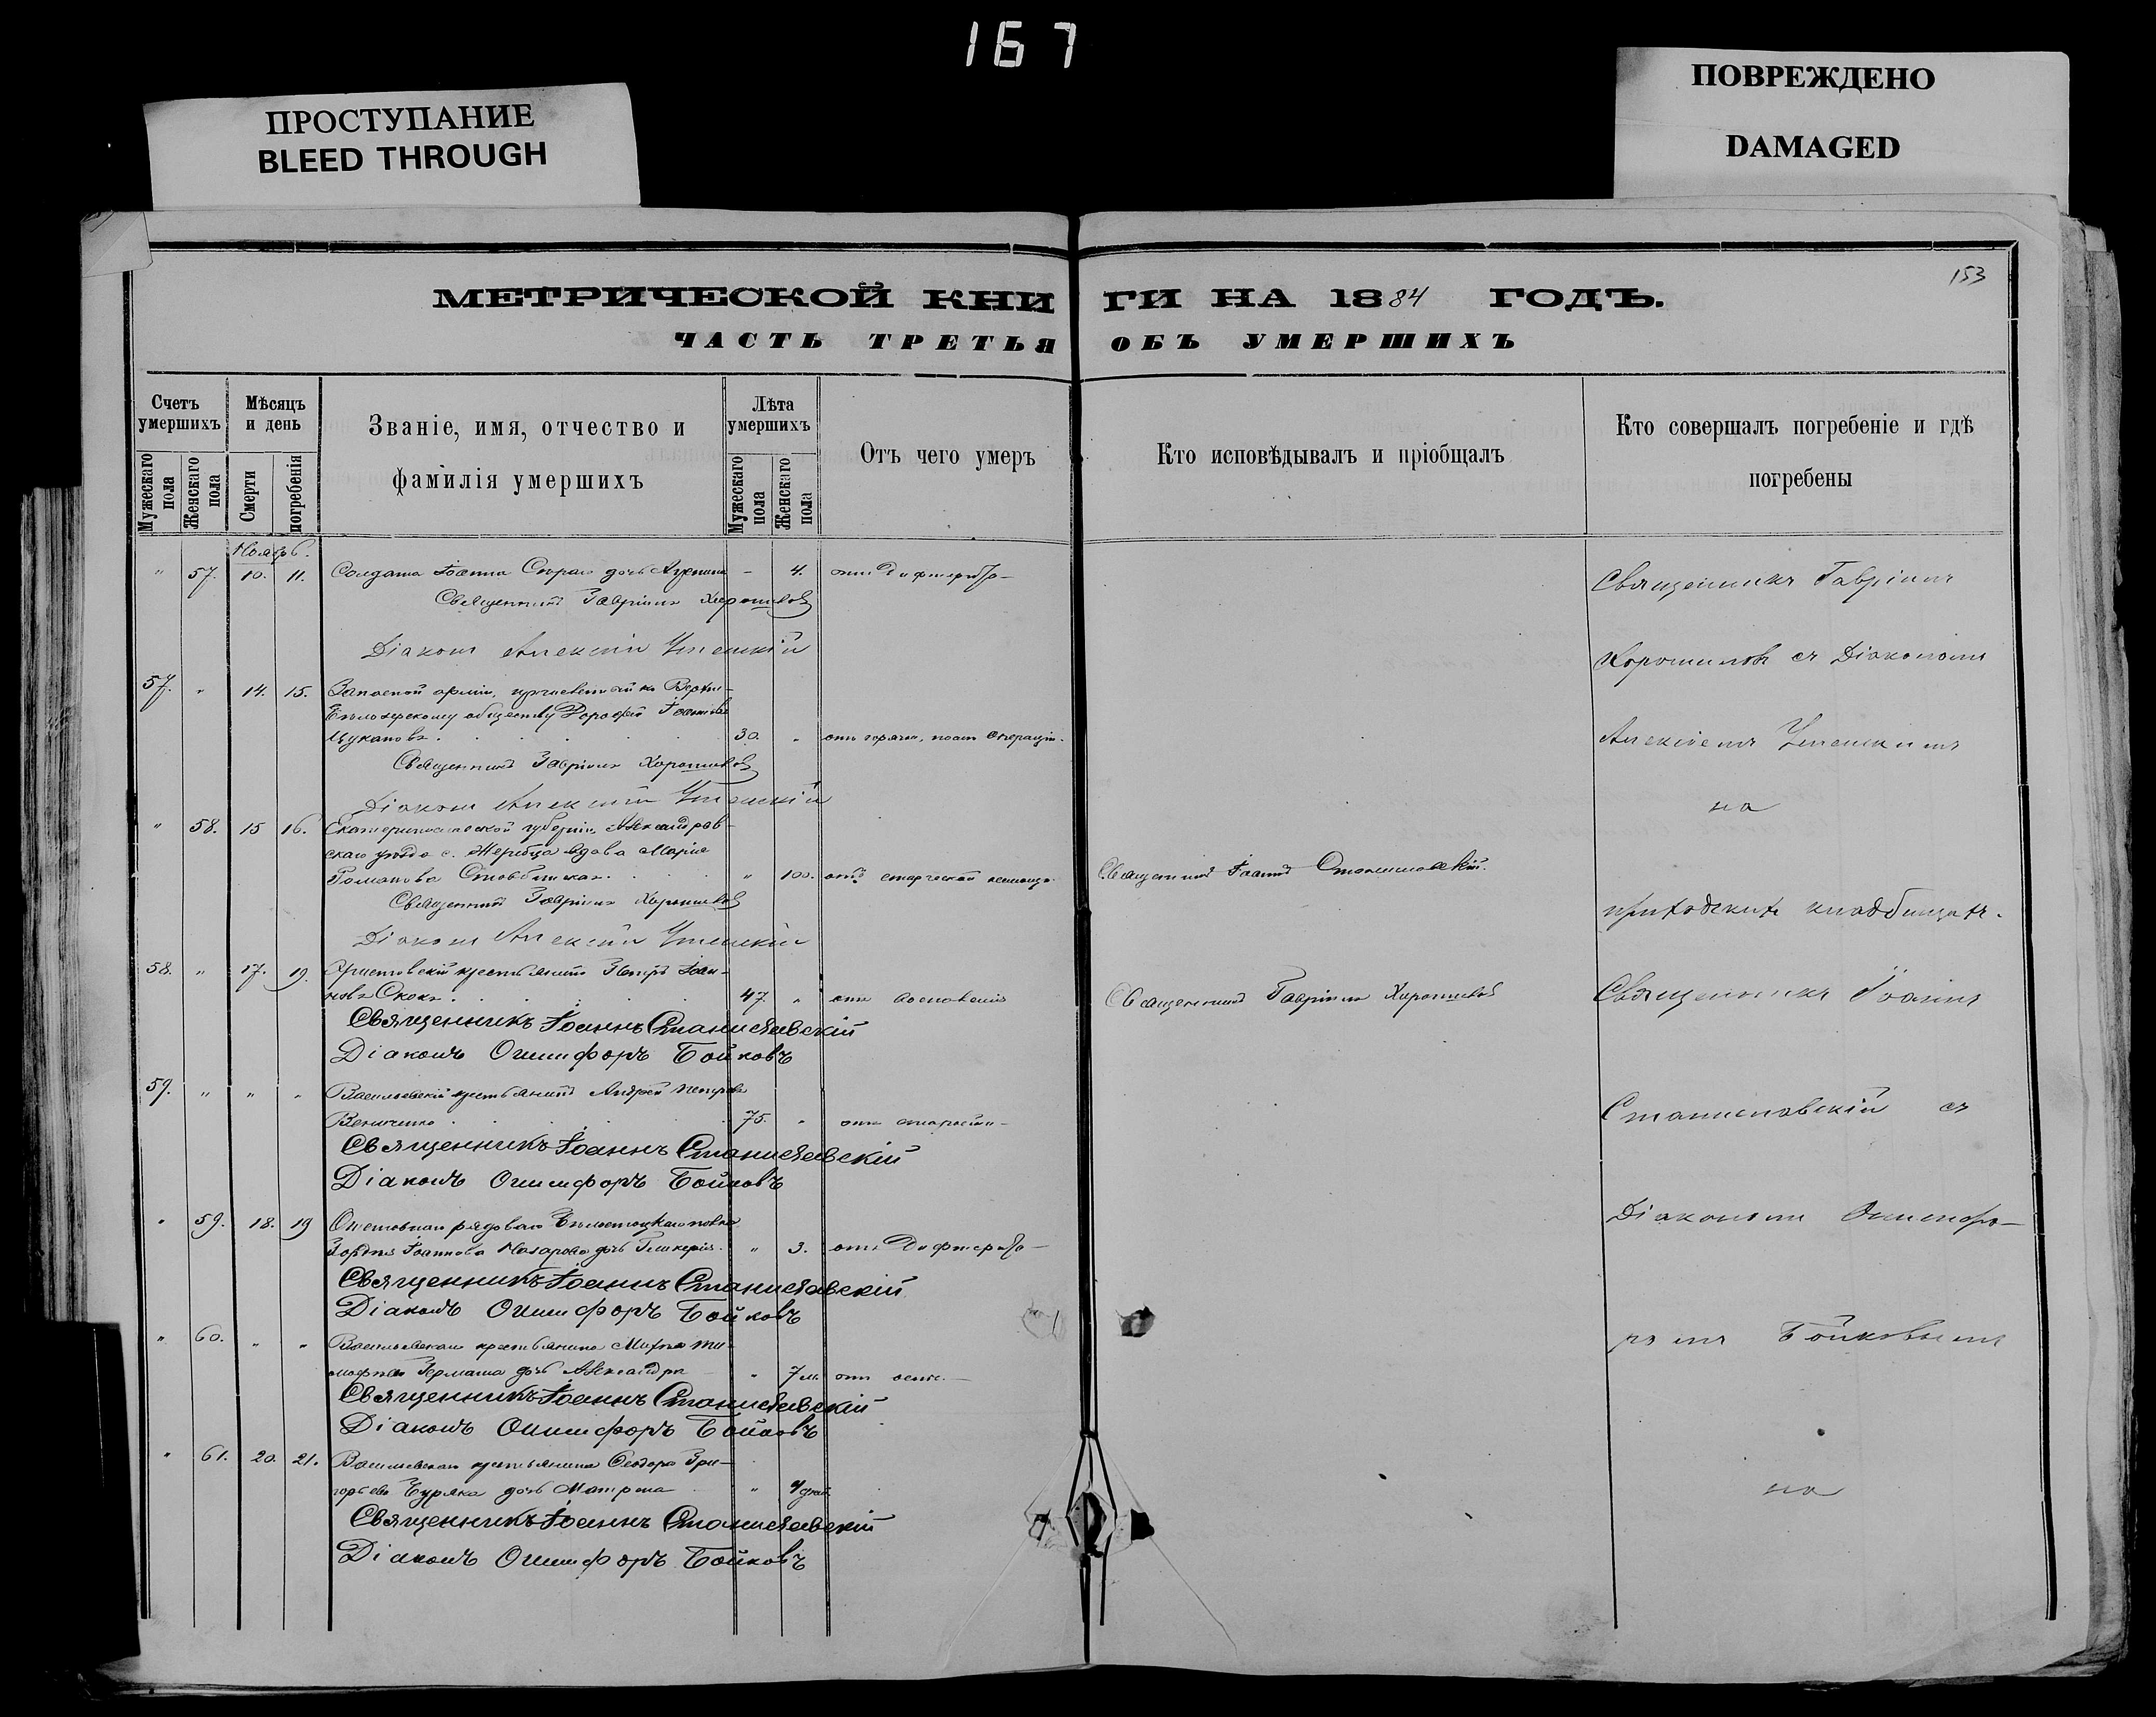 167
ПРОСТУПАНИЕ
BLEED THROUGH
ПОВРЕЖДЕНО
DAMAGED
153
МЕТРИЧЕСКОЙ КНИГИ НА 1884 ГОДЪ.
ЧАСТЬ ТРЕТЬЯ ОБЪ УМЕРШИХЪ
Счетъ умершихъ
Мѣсяцъ и день
Званіе, имя, отчество и фамилія умершихъ
Лѣта умершихъ
Отъ чего умеръ
Кто исповѣдывалъ и пріобщалъ
Кто совершалъ погребеніе и гдѣ погребены
Мужескаго пола
Женскаго пола
Смерти
погребенія
Мужескаго пола
Женскаго пола
Ноябрь.
" 57. 10. 11. Солдата Іоанна дочь – 4. отъ Дифтерита–
Священникъ Гавріилъ Хорошиловъ
Діаконъ Алексій
57. " 14. 15. Запасной арміи,
обществу Дорофей Іоанновъ
Цукановъ. 30. " отъ горячки, послѣ операціи.
Священникъ Гавріилъ Хорошиловъ
Діаконъ Алексій
" 58. 15 16. Екатеринославской губерніи, Александров–
скаго уѣзда с. Жеребца вдова Марія
Романова " 100. отъ старческой немощи. Священникъ Іоаннъ Станиславскій.
Священникъ Гавріилъ Хорошиловъ
Діаконъ Алексій
58. " 17. 19. крестьянинъ Петръ Іоан–
новъ Ококъ. 47. " отъ воспаленія Священникъ Гавріилъ Хорошиловъ
Священникъ Іоаннъ Станиславскій
Діаконъ Онисифоръ Бойковъ
59. " " " Васильевскій крестьянинъ Андрей Петровъ
75. " отъ старости–
Священникъ Іоаннъ Станиславскій
Діаконъ Онисифоръ Бойковъ
" 59. 18. 19 рядоваго Бѣлостоцкаго полка
Іоаннова Назарова дочь Гликерія. " 3. отъ Дифтерита–
Священникъ Іоаннъ Станиславскій
Діаконъ Онисифоръ Бойковъ
" 60. " " Васильевскаго крестьянина
дочь Александра " 7 м. отъ оспы.–
Священникъ Іоаннъ Станиславскій
Діаконъ Онисифоръ Бойковъ
" 61. 20. 21. Васильевскаго крестьянина Ѳеодора Гри–
горьева Буряка дочь Матрона " дней
Священникъ Іоаннъ Станиславскій
Діаконъ Онисифоръ Бойковъ
Священникъ Гавріилъ
Хорошиловъ съ Діакономъ
Алексіемъ
на
приходскихъ кладбищахъ.
Священникъ Іоаннъ
Станиславскій съ
Діакономъ Онисифо–
ромъ Бойковымъ
на